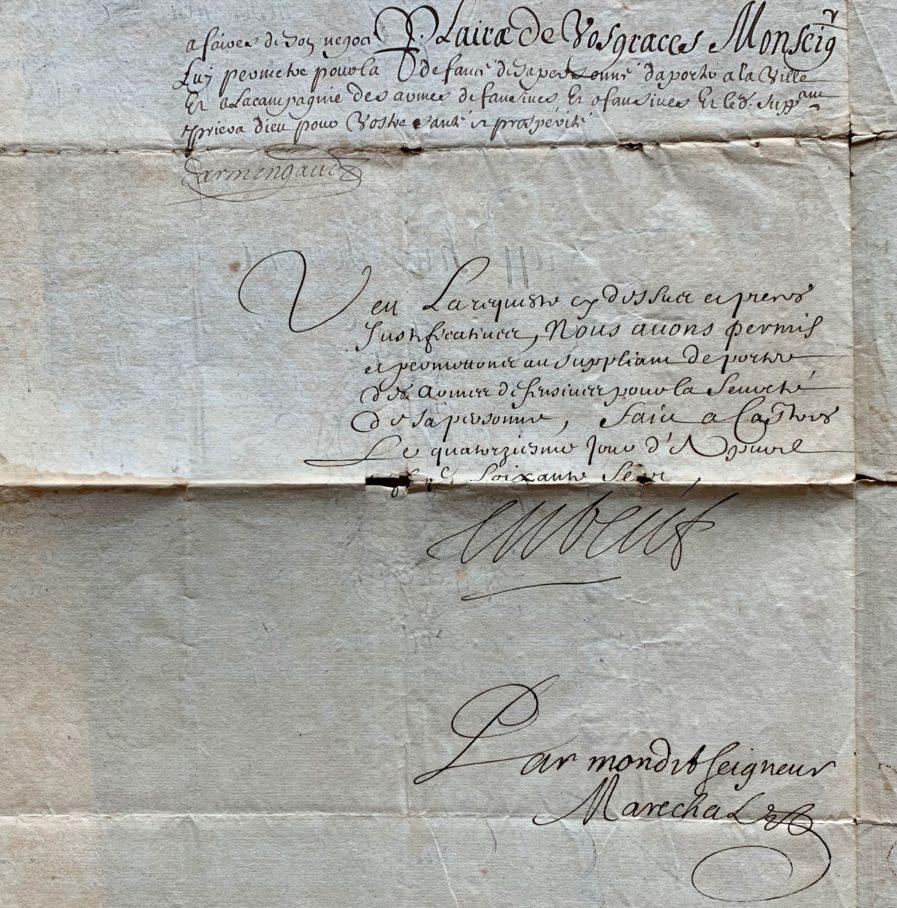 afaires de son negoce Plaira de Vosgraces Monseigr
Luy permetre pourla defance desapersonne daporter ala Ville
Et alacampagnie des armes defancives Et ofancives Et led. Suppant
priera dieu pour Vostre santé et prosperité
Darmengaud
Veu Larequeste cy dessus et preuves
Justificatives, Nous avons permis
et permettons au suppliant de porter
des armes defensives pour la seureté
de sa personne, faict a Castres
Le quatorziesme jour d'Apvril
soixante sept,
Par mondit seigneur
Marechal